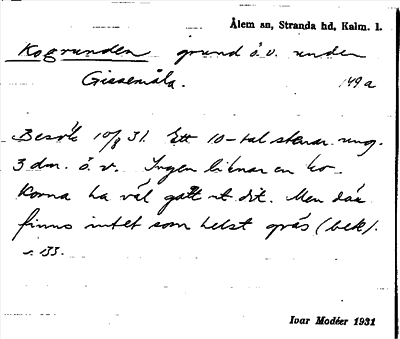 Ålem sn, Stranda hd, Kalm. l.
Kogrunden grund ö.v. under
Gissemåla. 149 a
Besök 10/8 31. Ett 10-tal stenar ung.
3 dm. ö. v. Ingen liknar en ko.
Korna ha väl gått ut dit. Men där
finns intet som helst gräs (bek).
s. 133.
Ivar Modéer 1931